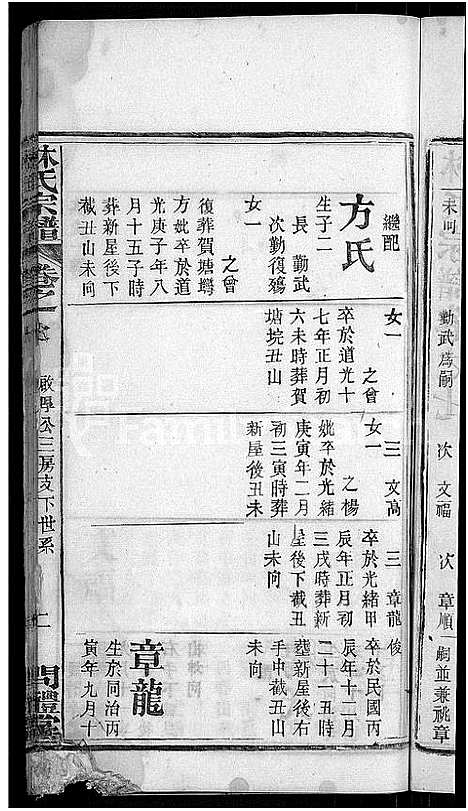 未向
勤武爲嗣
次文福
次章順
嗣並兼祧章
繼配
方氏
生子二
長勤武
次勤復殤
女一
之曾
復葬賀塘塆
方妣卒於道
光庚子年八
月十五子時
葬新屋後下
截丑山未向
女一
之曾
卒於道光十
七年正月初
六未時葬賀
塘垸丑山
三文高
女一
之楊
妣卒於光緒
庚寅年二月
初三寅時葬
新屋後丑未
三章龍
卒於光緒甲
辰年正月初
三戌時葬新
屋後下截丑
山未向
俊
卒於民國丙
辰年十二月
二十一五時
葬新屋後右
手中截丑山
未向
章龍
生於同治丙
寅年九月十
林氏宗譜
卷之一
啟厚公三房支下世系
二